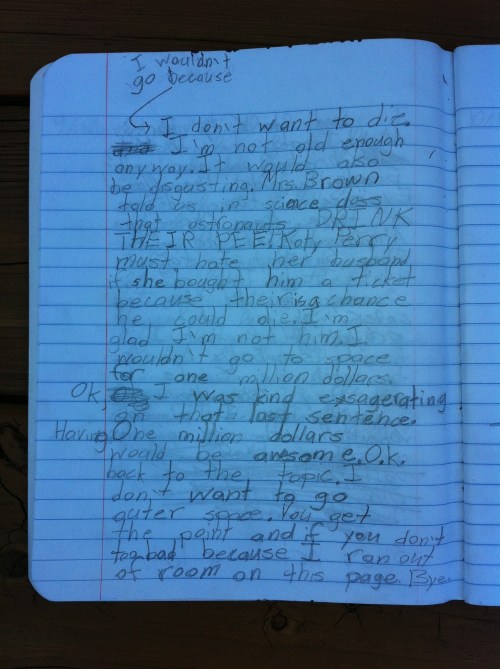 I wouldn't
go because
I don't want to die.
I'm not old enough
anyway. It would also
be disgusting. Mrs. Brown
told us in science class
that astronauts DRINK
THEIR PEE. Katy Perry
must hate her husband
if she bought him a ticket
because their is a chance
he could die. I'm
glad I'm not him. I
wouldn't go to space
for one million dollars.
Ok, I was kind exsagerating
on that last sentence.
Having One million dollars
would be awsome. O.k.
back to the topic. I
don't want to go
outer space. You get
the point and if you don't
too bad because I ran out
of room on this page. Bye.